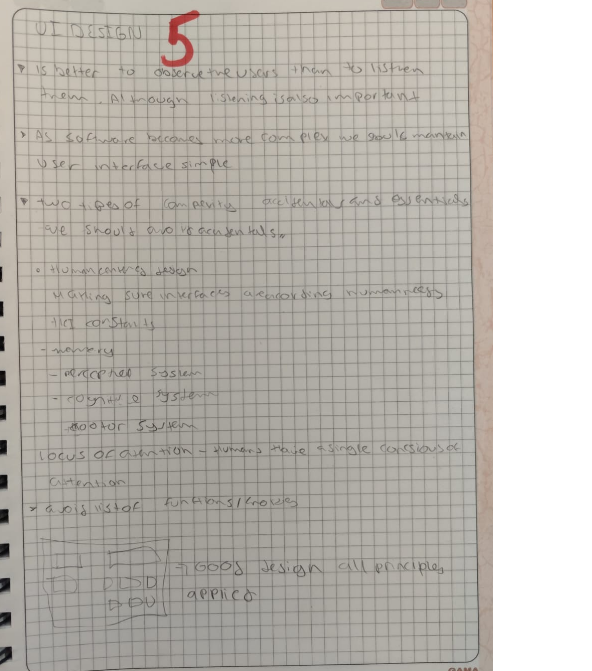 UI DESIGN 5
is better to observe the users than to listhen
them, Although listening is also important
As software becomes more complex we sould mantein
user interface simple
two tipes of complexity accidentals and essentials
we should avoid accidentals.
Human centered design
Making sure interfaces acording humannees
and constraits
- memory
- perception system
- cognitive system
motor system
locus of atention - humans have a single consious of
attention
avoid list of functions/knows
→ good design all principles
applied